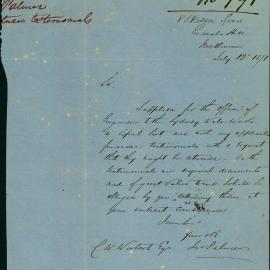 Palmer
testimonials
Emerald Hill
Melbourne
July 12th 1871
Sir
I applied for the office of
Engineer to the Sydney Water Works
in April last and with my application
forwarded testimonials with a request
that they might be returned. As the
testimonials are original documents
and of great value to me I shall be
obliged by you returning them at
your earliest convenience
I am Sir
Yours
C. W.
Esq
Palmer